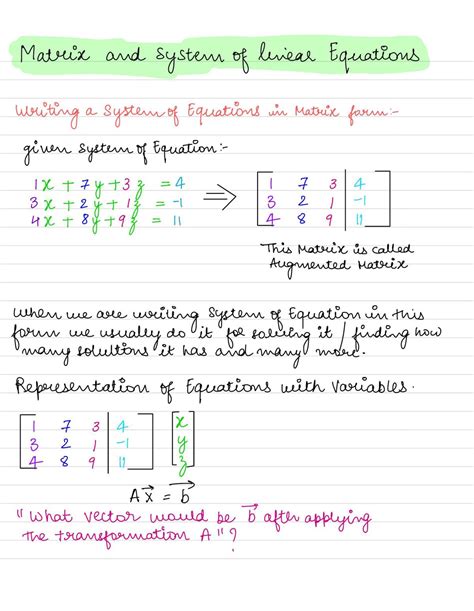 Matrix and System of linear Equations
Writing a System of Equations in Matrix form:-
given System of Equation:-
1x + 7y + 3z = 4
3x + 2y + 1z = -1
4x + 8y + 9z = 11
⟹
1 7 3 | 4
3 2 1 | -1
4 8 9 | 11
This Matrix is called
Augmented Matrix
when we are writing System of Equation in this
form we usually do it for solving it / finding how
many solutions it has and many more.
Representation of Equations with Variables.
1 7 3 | 4
3 2 1 | -1
4 8 9 | 11
x
y
z
Ax⃗ = b⃗
"What vector would be b⃗ after applying
the transformation A"?